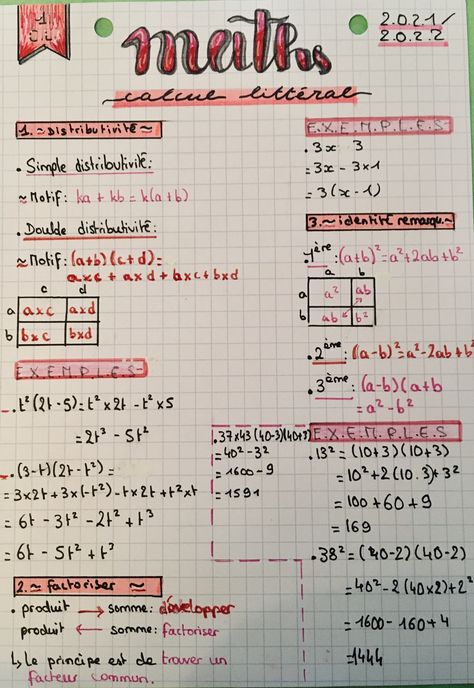 1
2.0.2.1/
2.0.2.2
maths
calcul littéral
1. ~ Distributivité ~
. Simple distributivité:
~ Motif: ka + kb = k(a+b)
. Doulde distributivité:
~ Motif: (a+b)(c+d)=
axc + axd + bxc + bxd
c d
a axc axd
b bxc bxd
E.X.E.M.P.L.E.S
. t²(2t-5) = t² x 2t - t² x 5
= 2t³ - 5t²
. (3-t)(2t-t²) =
= 3x2t + 3x(-t²) - t x 2t + t² x t
= 6t - 3t² - 2t² + t³
= 6t - 5t² + t³
2. ~ factoriser ~
. produit → somme: développer
produit ← somme: factoriser
↳ Le principe est de trouver un
facteur commun.
E.X.E.M.P.L.E.S
. 3x 3
= 3x - 3x1
= 3(x-1)
3. ~ identité remarqu. ~
. 1ère: (a+b)² = a² + 2ab + b²
a b
a a² ab
b ab b²
. 2ème: (a-b)² = a² - 2ab + b²
. 3ème: (a-b)(a+b
= a² - b²
. 37x43 (40-3)(40+3)
= 40² - 3²
= 1600 - 9
= 1591
E.X.E.M.P.L.E.S
. 13² = (10+3)(10+3)
= 10² + 2(10.3) + 3²
= 100 + 60 + 9
= 169
. 38² = (40-2)(40-2)
= 40² - 2(40x2) + 2²
= 1600 - 160 + 4
= 1444